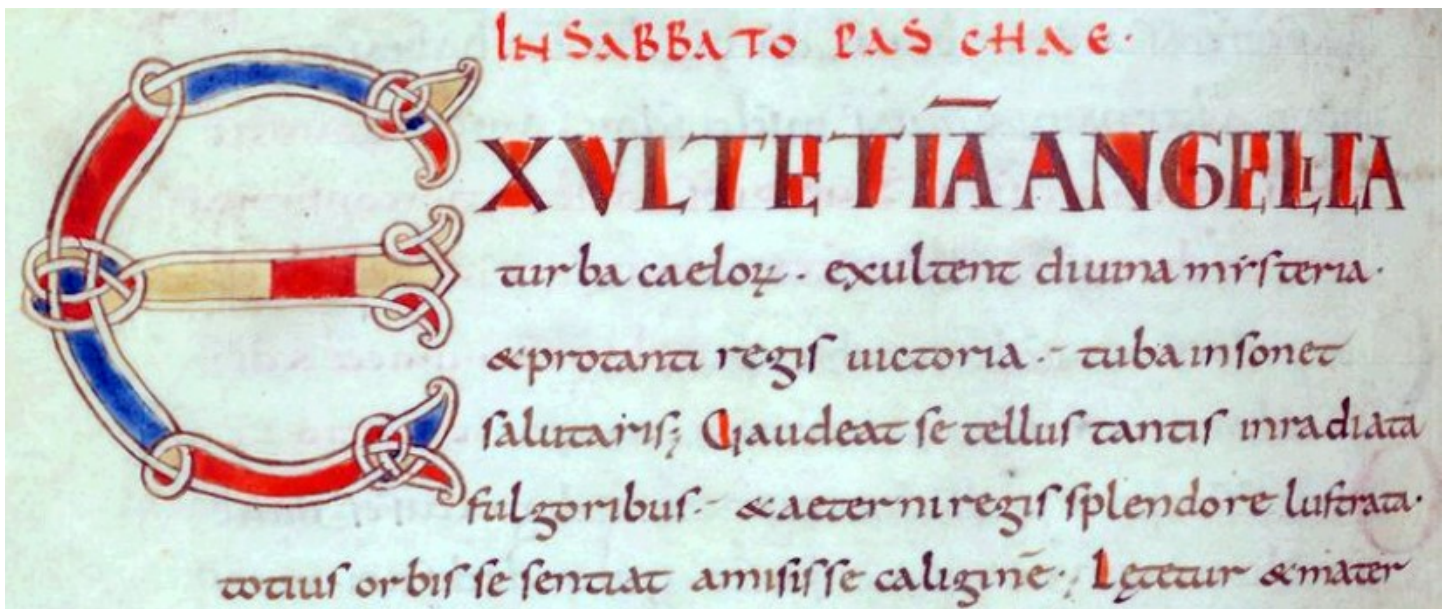 IN SABBATO PASCHAE·
EXULTET IĀ ANGELICA
turba caeloꝝ · exultent diuina mysteria·
&protanti regis uictoria ·- tuba insonet
salutaris; Gaudeat se tellus tantis inradiata
fulgoribus·- &aeterni regis splendore lustrata·
totius orbis se sentiat amisisse caliginē·; Lętetur &mater